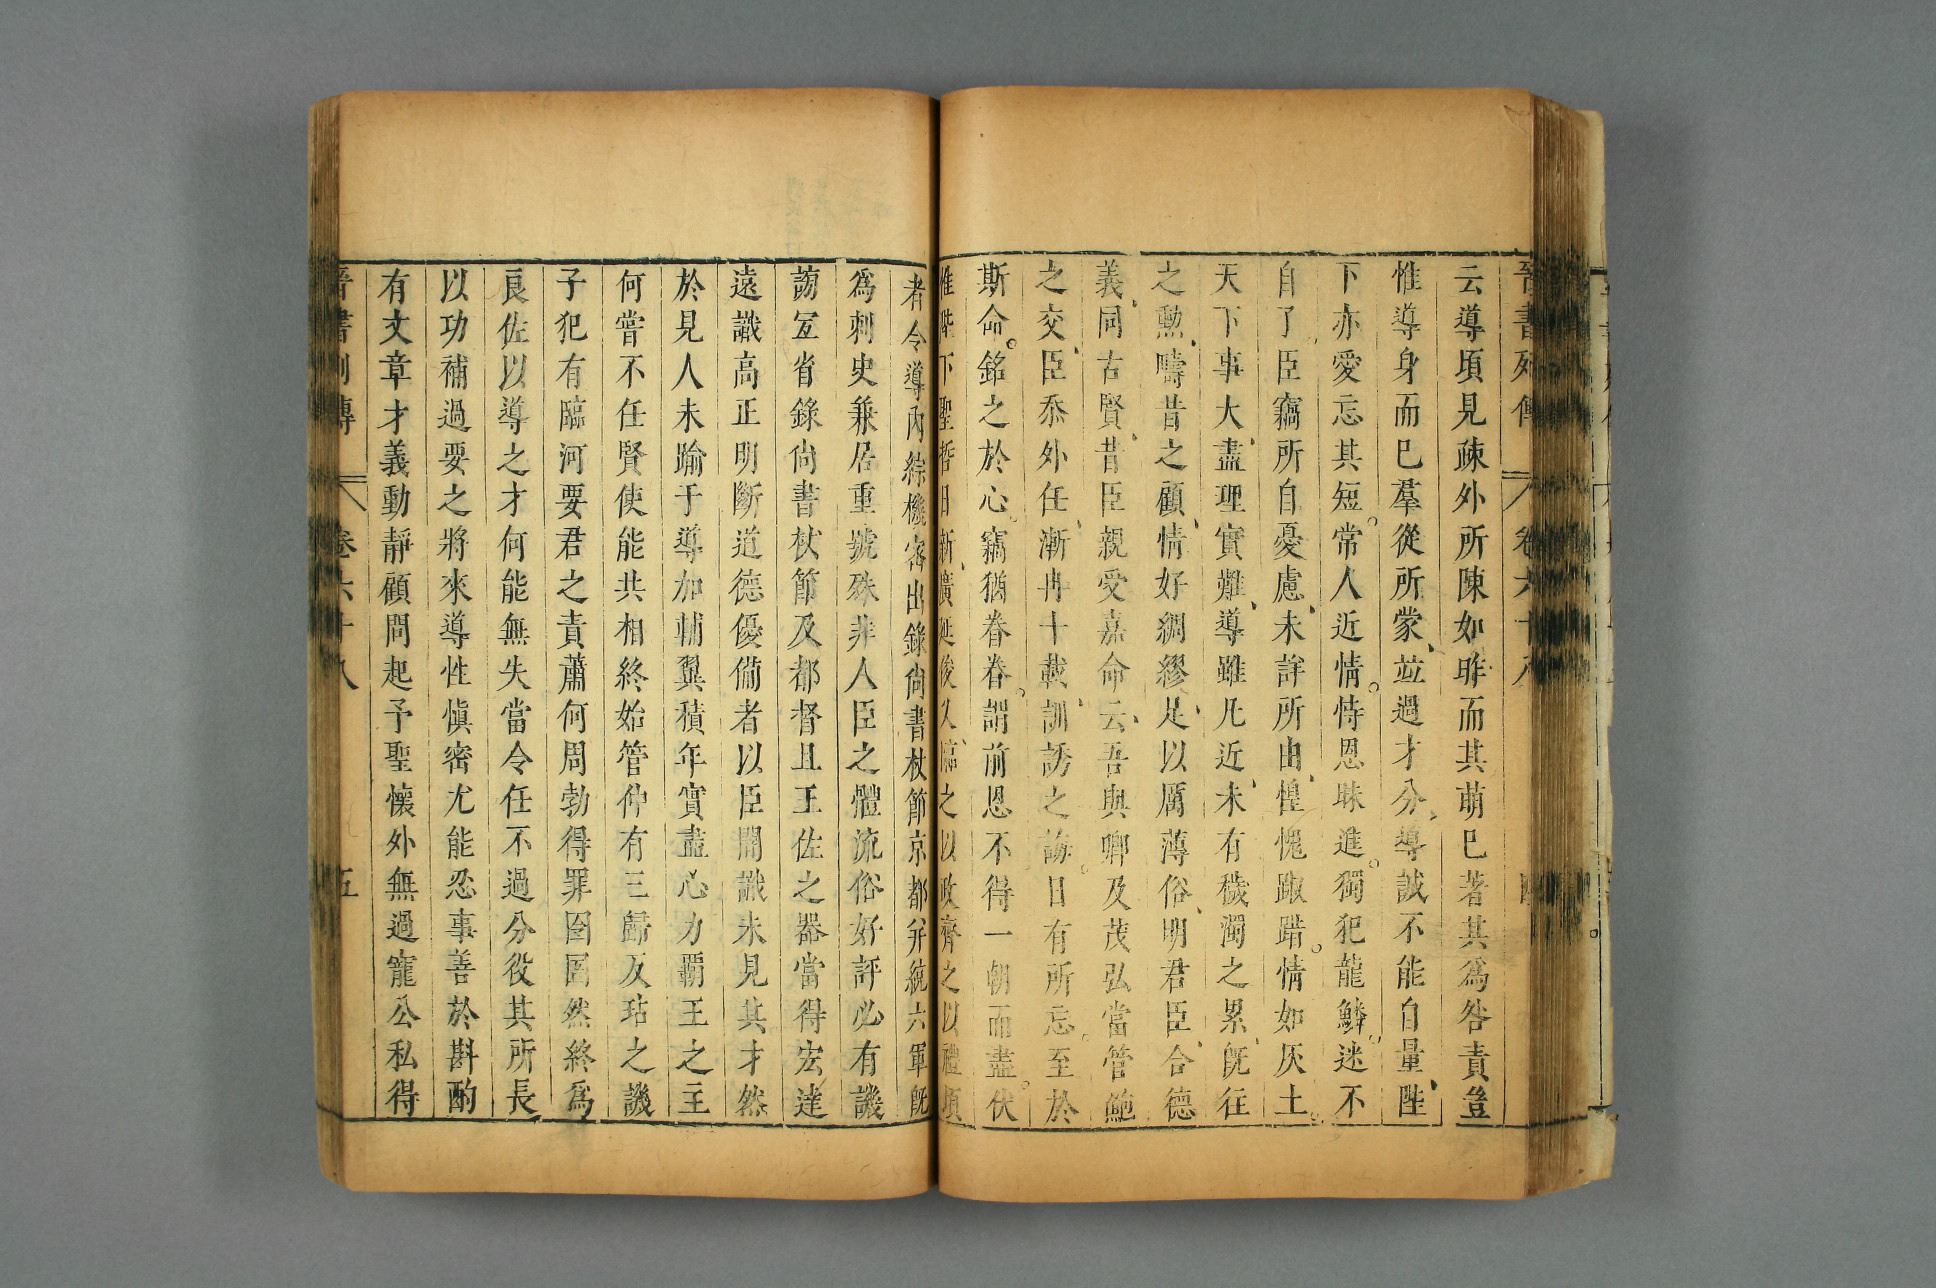 晉書列傳 卷六十八 四
云導頃見疎外所陳如昨而其萌巳著其爲咎責豈
惟導身而巳羣從所蒙並過才分導誠不能自量陛
下亦愛忘其短常人近情恃恩昧進獨犯龍鱗迷不
自了臣竊所自憂慮未詳所由惶愧踧踖情如灰土
天下事大盡理實難導雖凡近未有穢濁之累旣往
之勲疇昔之顧情好綢繆足以厲薄俗明君臣合德
義同古賢昔臣親受嘉命云吾與卿及茂弘當管鮑
之交臣忝外任漸冉十載訓誘之誨日有所忘至於
斯命銘之於心竊猶眷眷謂前恩不得一朝而盡伏
惟陛下聖哲日新廣延俊乂臨之以政齊之以禮頃
者令導內綜機密出錄尙書杖節京都并統六軍旣
爲刺史兼居重號殊非人臣之體流俗好評必有譏
謗宐省錄尙書杖節及都督且王佐之器當得宏達
遠識高正明斷道德優備者以臣闇識未見其才然
於見人未踰于導加輔翼積年實盡心力霸王之主
何嘗不任賢使能共相終始管仲有三歸反玷之譏
子犯有臨河要君之責蕭何周勃得罪囹圄然終爲
良佐以導之才何能無失當令任不過分役其所長
以功補過要之將來導性愼密尤能忍事善於斟酌
有文章才義動靜顧問起予聖懷外無過寵公私得
晉書列傳 卷六十八 五